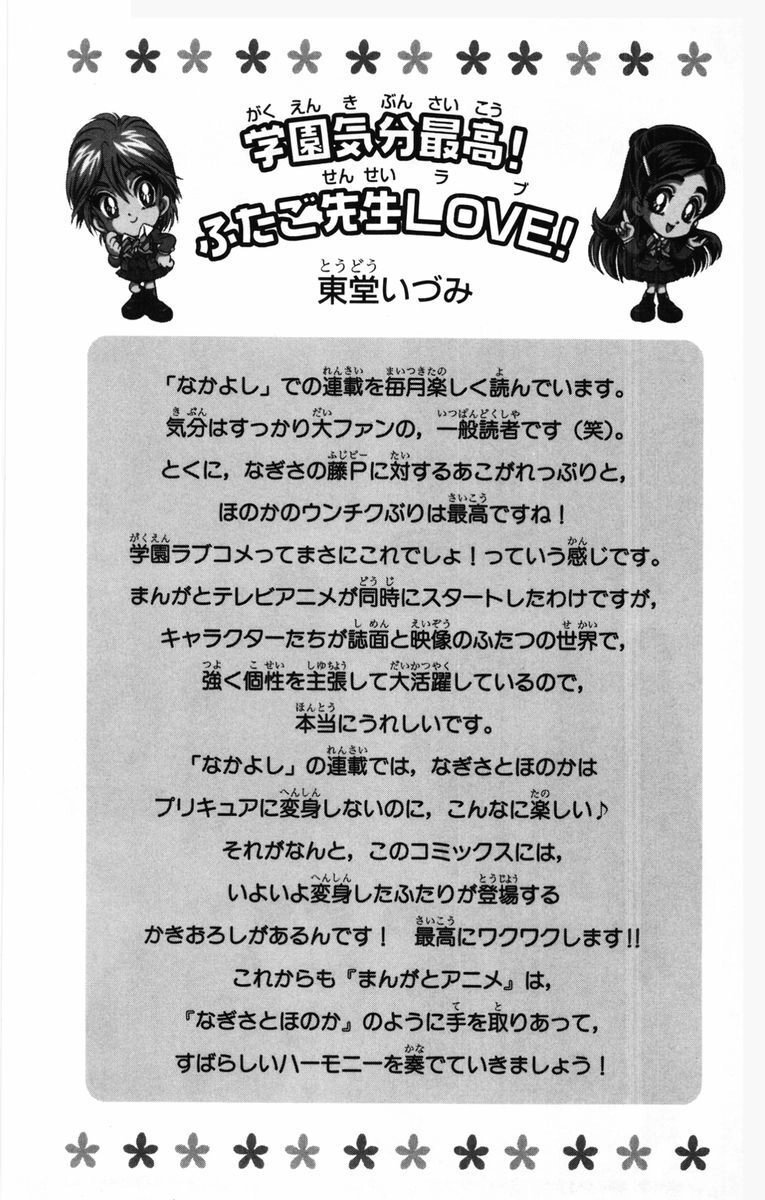 学園気分最高!
ふたご先生LOVE!
東堂いづみ
「なかよし」での連載を毎月楽しく読んでいます。
気分はすっかり大ファンの,一般読者です(笑)。
とくに,なぎさの藤Pに対するあこがれっぷりと,
ほのかのウンチクぶりは最高ですね!
学園ラブコメってまさにこれでしょ!っていう感じです。
まんがとテレビアニメが同時にスタートしたわけですが,
キャラクターたちが誌面と映像のふたつの世界で,
強く個性を主張して大活躍しているので,
本当にうれしいです。
「なかよし」の連載では,なぎさとほのかは
プリキュアに変身しないのに,こんなに楽しい♪
それがなんと,このコミックスには,
いよいよ変身したふたりが登場する
かきおろしがあるんです! 最高にワクワクします!!
これからも『まんがとアニメ』は,
『なぎさとほのか』のように手を取りあって,
すばらしいハーモニーを奏でていきましょう!